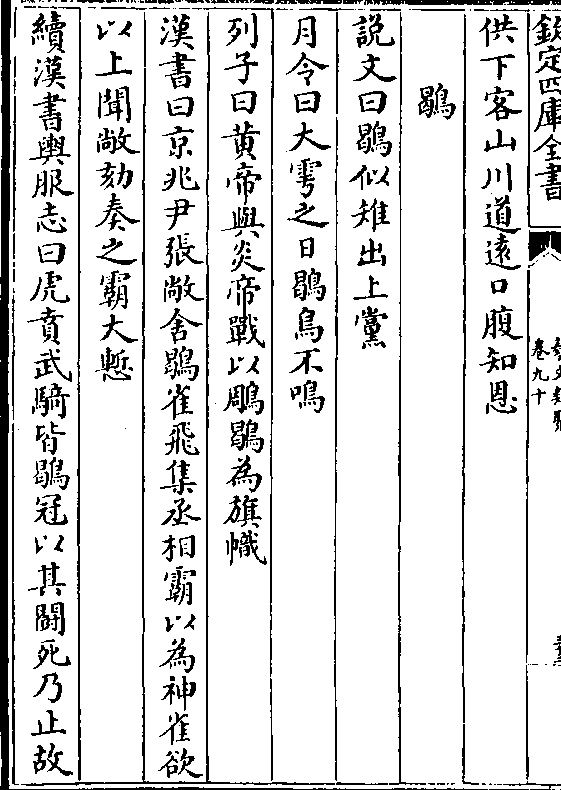 欽定四庫全書
卷九十
供下客山川道遠口腹知恩
鶡
說文曰鶡似雉出上黨
月令曰大雪之日鶡鳥不鳴
列子曰黄帝與炎帝戰以鵰鶡為旗幟
漢書曰京兆尹張敞舍鶡雀飛集丞相霸以為神雀欲
以上聞敞劾奏之霸大慙
續漢書輿服志曰虎賁武騎皆鶡冠以其鬭死乃止故